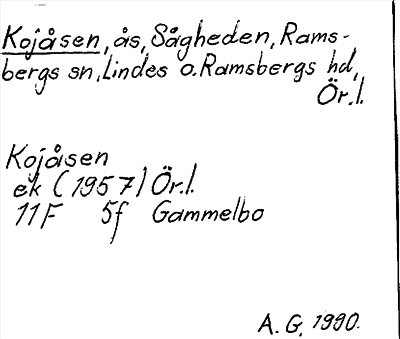 Kojåsen, ås, Sågheden, Rams-
bergs sn, Lindes o. Ramsbergs hd,
Ör.l.
Kojåsen
ek (1957) Ör.l.
11F 5f Gammelbo
A.G. 1990.